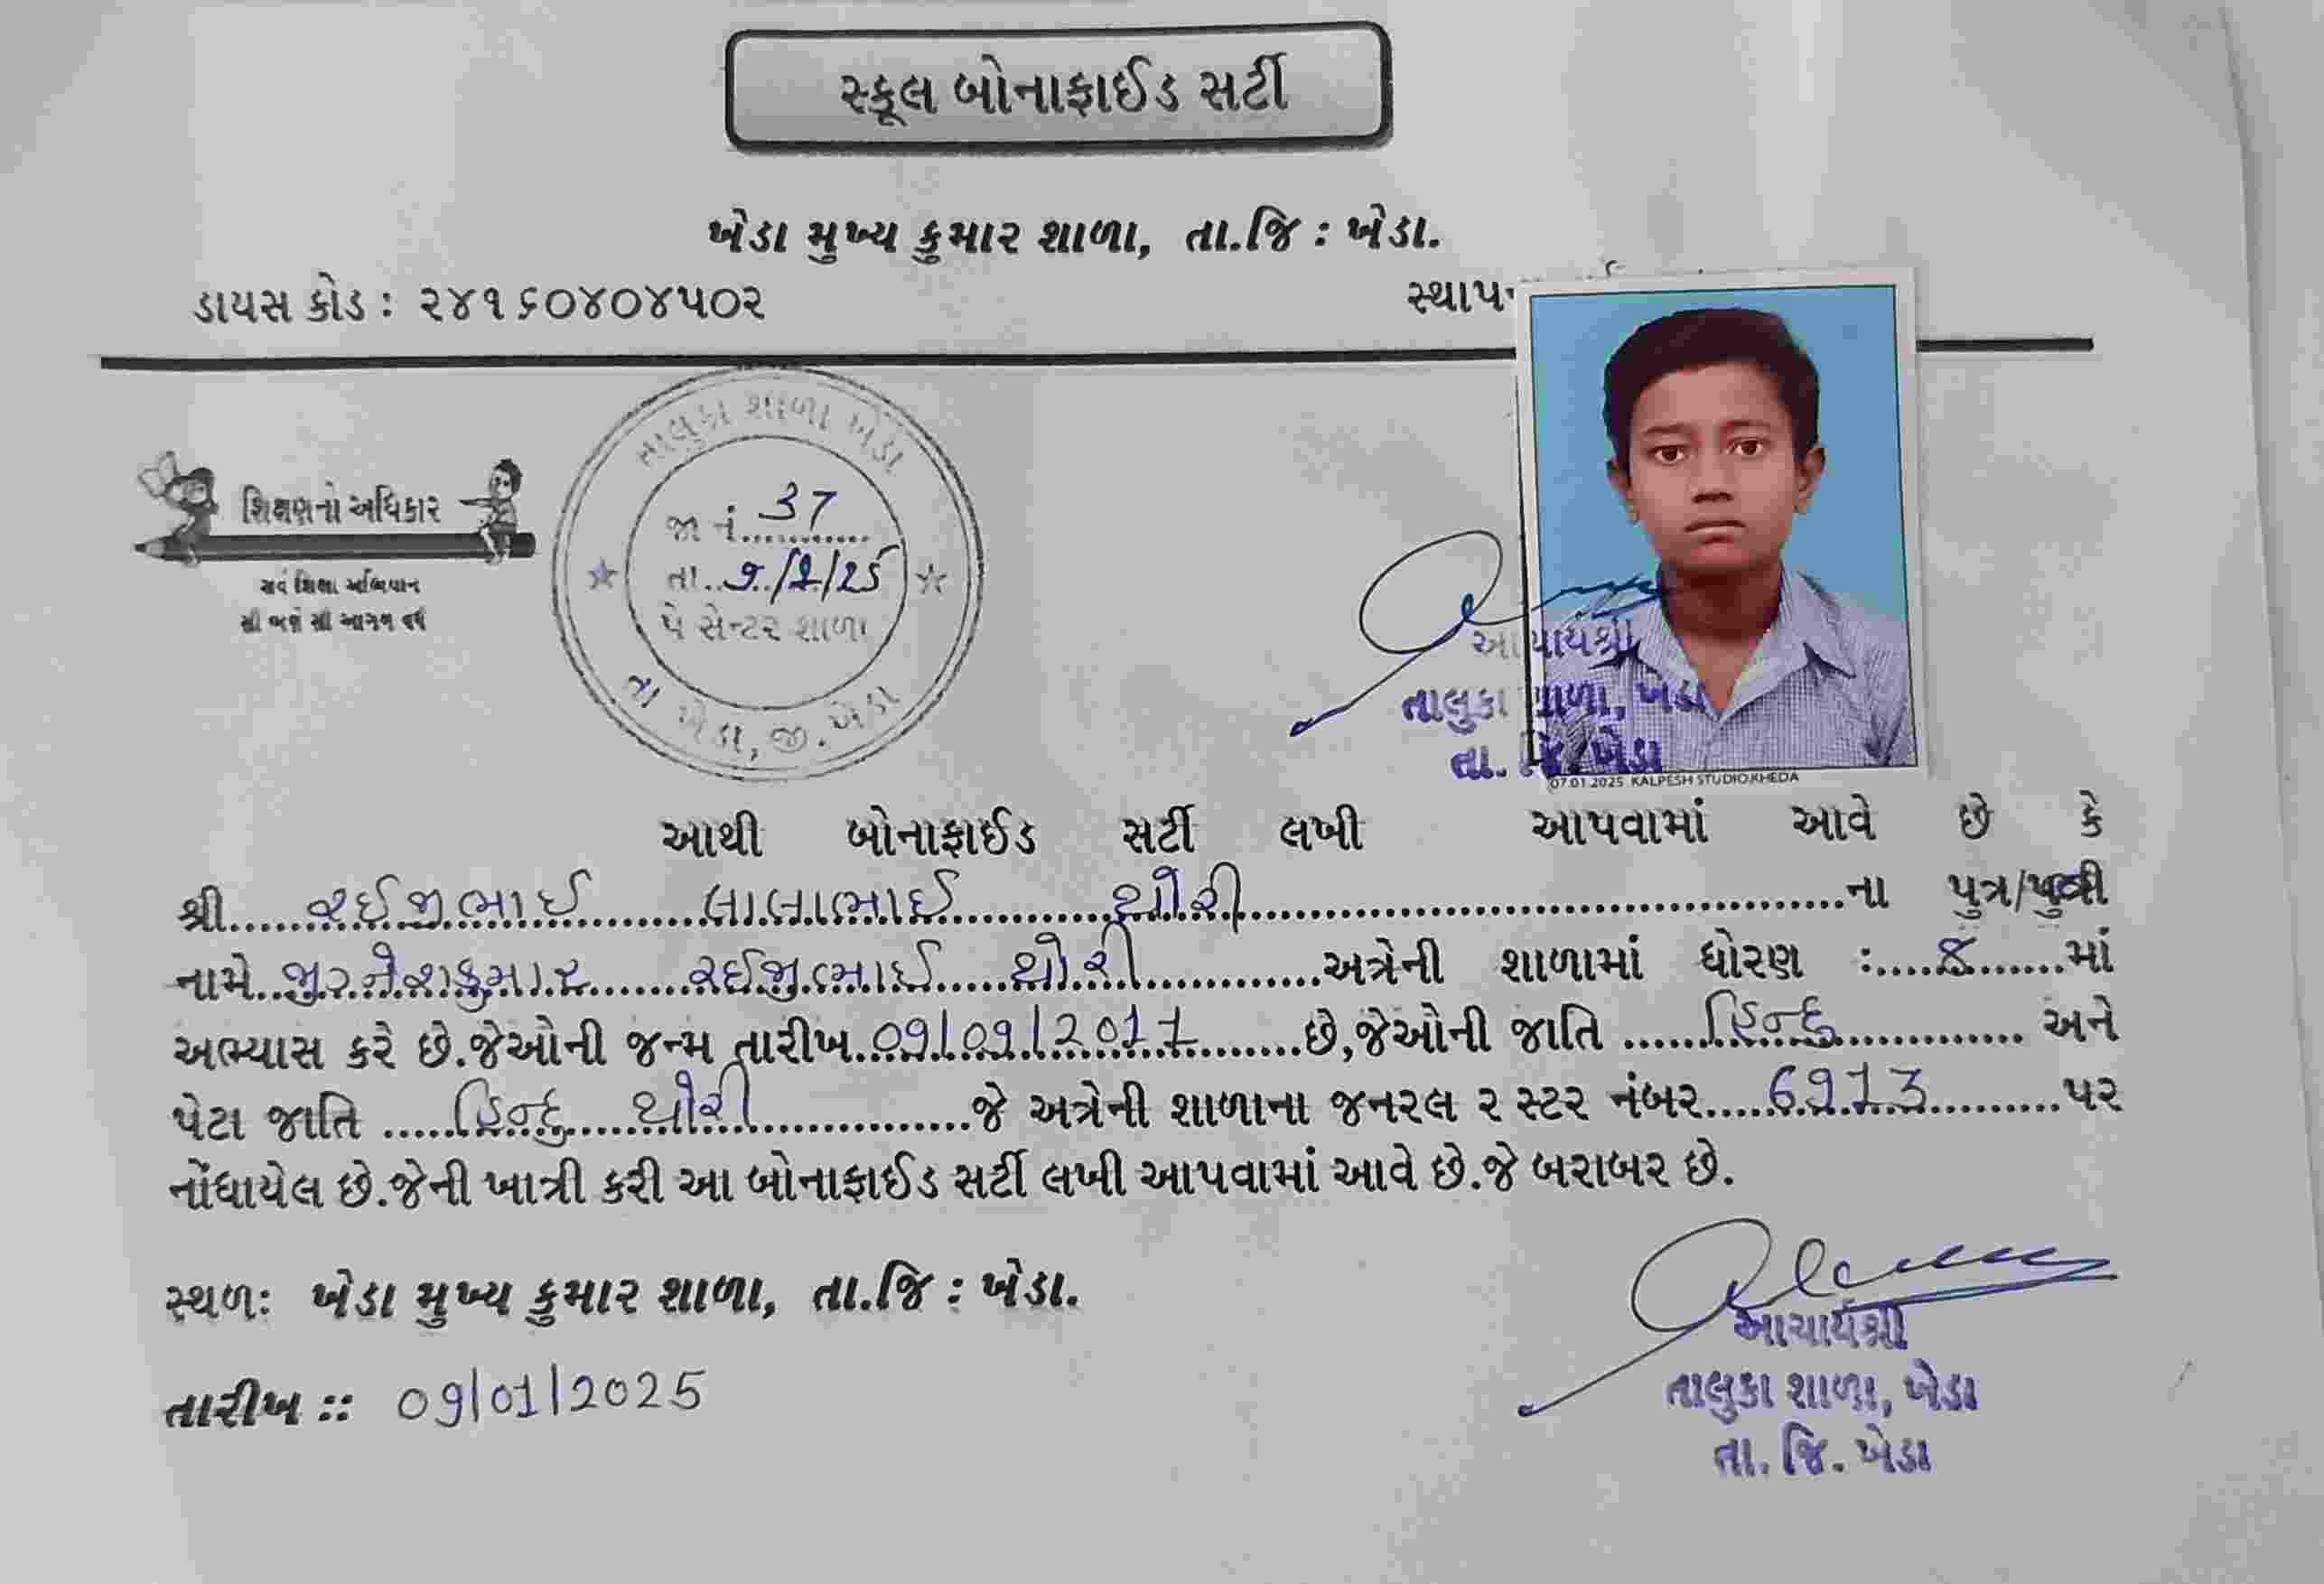 સ્કૂલ બોનાફાઈડ સર્ટી
ખેડા મુખ્ય કુમાર શાળા, તા.જિ : ખેડા.
ડાયસ કોડ : ૨૪૧૬૦૪૦૪૫૦૨
સ્થાપ
શિક્ષણનો અધિકાર
સર્વ શિક્ષા અભિયાન
સૌ ભણે સૌ આગળ વધે
તાલુકા શાળા ખેડા
જા નં. 37
તા. 9/1/25
પે સેન્ટર શાળા
તા ખેડા, જી. ખેડા
આચાર્યશ્રી
તાલુકા શાળા, ખેડા
તા. જિ. ખેડા
07.01.2025 KALPESH STUDIO.KHEDA
આથી બોનાફાઈડ સર્ટી લખી આપવામાં આવે છે કે
શ્રી.....રઈજીભાઈ લાલાભાઈ થોરી.....ના પુત્ર/પુત્રી
નામે.. રઈજીભાઈ થોરી.....અત્રેની શાળામાં ધોરણ :....૪.....માં
અભ્યાસ કરે છે.જેઓની જન્મ તારીખ..09/09/2011.....છે,જેઓની જાતિ ......હિન્દુ...... અને
પેટા જાતિ .....હિન્દુ થોરી.....જે અત્રેની શાળાના જનરલ ર સ્ટર નંબર.....6913.....પર
નોંધાયેલ છે.જેની ખાત્રી કરી આ બોનાફાઈડ સર્ટી લખી આપવામાં આવે છે.જે બરાબર છે.
સ્થળ: ખેડા મુખ્ય કુમાર શાળા, તા.જિ : ખેડા.
તારીખ :: 09/01/2025
આચાર્યશ્રી
તાલુકા શાળા, ખેડા
તા. જિ. ખેડા